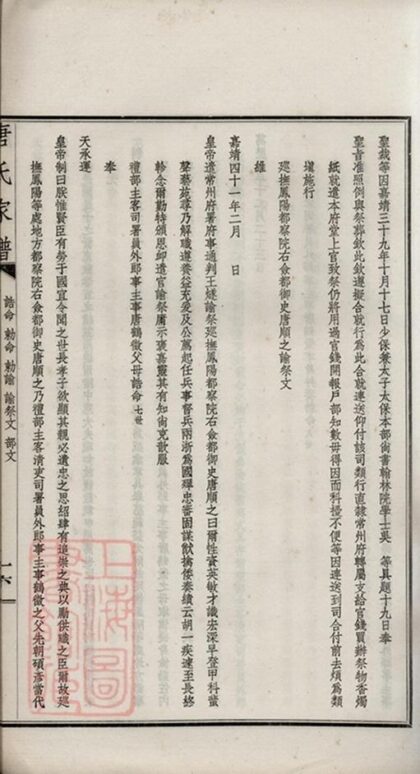 聖裁等因嘉靖三十九年十月十七日少保兼太子太保本部尚書翰林院學士吳 等具題十九日奉
聖旨准照例與祭葬欽此欽遵擬合就行為此合就連送仰付該司類行直隸常州府轉屬支給官錢買辦祭物香燭
紙就遣本府堂上官致祭仍將用過官錢開報戶部知數毋得因而科擾不便等因連送到司合付前去煩為類
填施行
巡撫鳳陽都察院右僉都御史唐順之諭祭文
維
嘉靖四十一年二月 日
皇帝遣常州府署府事通判王燧諭祭巡撫鳳陽都察院右僉都御史唐順之曰爾性資英敏才識宏深早登甲科蜚
聲藝苑尋乃解職遵養益充爰及公薦起任兵事督兵兩浙為國殫忠籌固謀猷擒倭奏績云胡一疾遽至長終
軫念爾勤特頒恩卹遣官諭祭庸示褒嘉靈其有知尚克散服
禮部主客司署員外郎事主事唐鶴徵父母誥命七世
奉
天承運
皇帝制曰朕惟賢臣有勞于國宜令聞之世長孝子欲顯其親必遺忠之思紹肆有追崇之典以勵供職之臣爾故巡
撫鳳陽等處地方都察院右僉都御史唐順之乃禮部主客清吏司署員外郎事主事鶴徵之父先朝碩彥當代
唐氏家譜
誥命 勅命 勅諭 諭祭文 部文
十六
上海圖